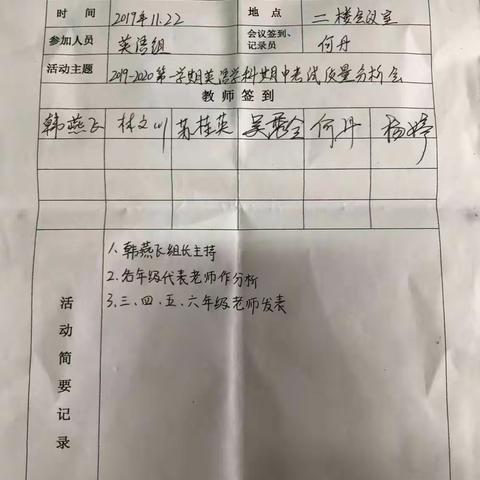 时 间 2019年11.22 地 点 二楼会议室
参加人员 英语组 会议签到、记录员 何丹
活动主题 2019-2020第一学期英语学科期中考试质量分析会
教 师 签 到
韩燕飞 林文川 苏桂英 何丹 杨婷
活动简要记录
1、韩燕飞组长主持
2、各年级代表老师作分析
3、三、四、五、六年级老师发表